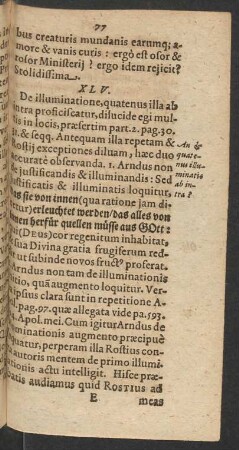 77
bus creaturis mundanis earumq; a-
more & vanis curis : ergò est osor &
rosor Ministerij ? ergo idem rejicit?
Stolidissima.
XLV.
De illuminatione, quatenus illa ab
intra proficiscatur, dilucide egi mul-
tis in locis, præsertim part. 2. pag. 30.
& seqq. Antequam illa repetam &
Rostij exceptiones diluam, hæc duo
accuratè observanda. 1. Arndus non
de justificandis & illuminandis: Sed
justificatis & illuminatis loquitur,
daß sie von innen (qua ratione jam di-
cetur) erleuchtet werden / das alles von
innen herfür quellen müsse aus GOtt:
qui (DEUS) cor regenitum inhabitat,
sua Divina gratia frugiferum red-
ut subinde novos fructꝰ proferat.
Arndus non tam de illuminationis
initio, quā augmento loquitur. Ver-
ipsius clara sunt in repetitione A-
pag. 97. quæ allegata vide pa. 593.
Apol. mei. Cum igitur Arndus de
illuminationis augmento præcipuè
loquatur, perperam illa Rostius con-
autoris mentem de primo illumi-
nationis actu intelligit. Hisce præ-
audiamus quid ROSTIUS ad
E meas
An &
quate-
nus illu-
minatio
ab in-
tra ?